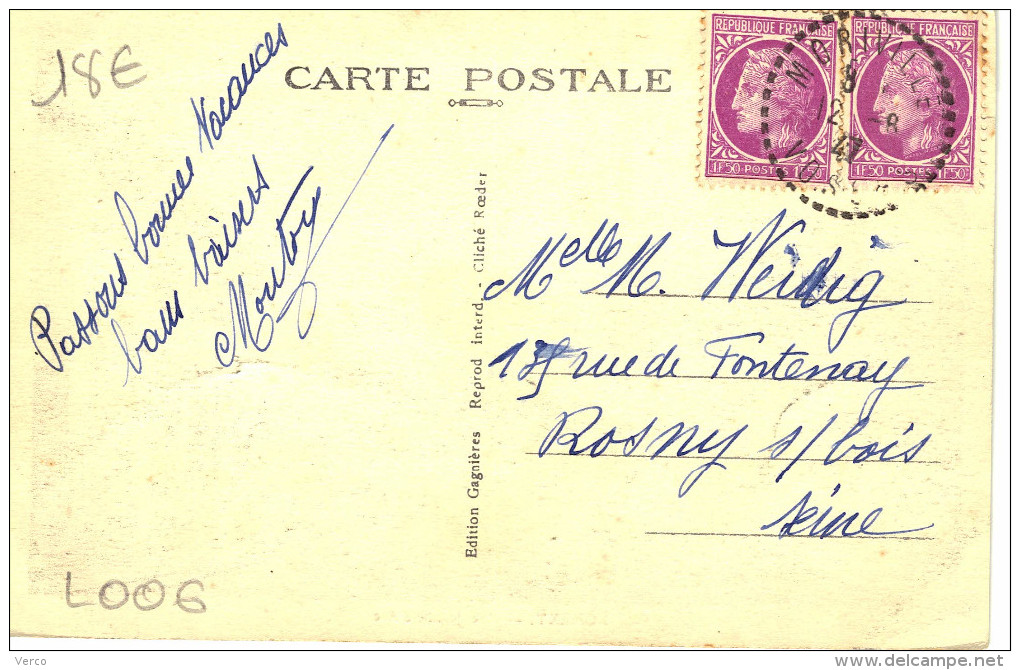 18E
CARTE POSTALE
RÉPUBLIQUE FRANÇAISE
RÉPUBLIQUE FRANÇAISE
1F50 - POSTES - 1F50
1F50 - POSTES - 1F50
Passons bonnes Vacances
bons baisers
Edition Gagnières Reprod interd. - Cliché Rœder
Melle M. Weidig
rue de Fontenay
Rosny s/bois
Seine
L006
Verco
www.delcampe.net